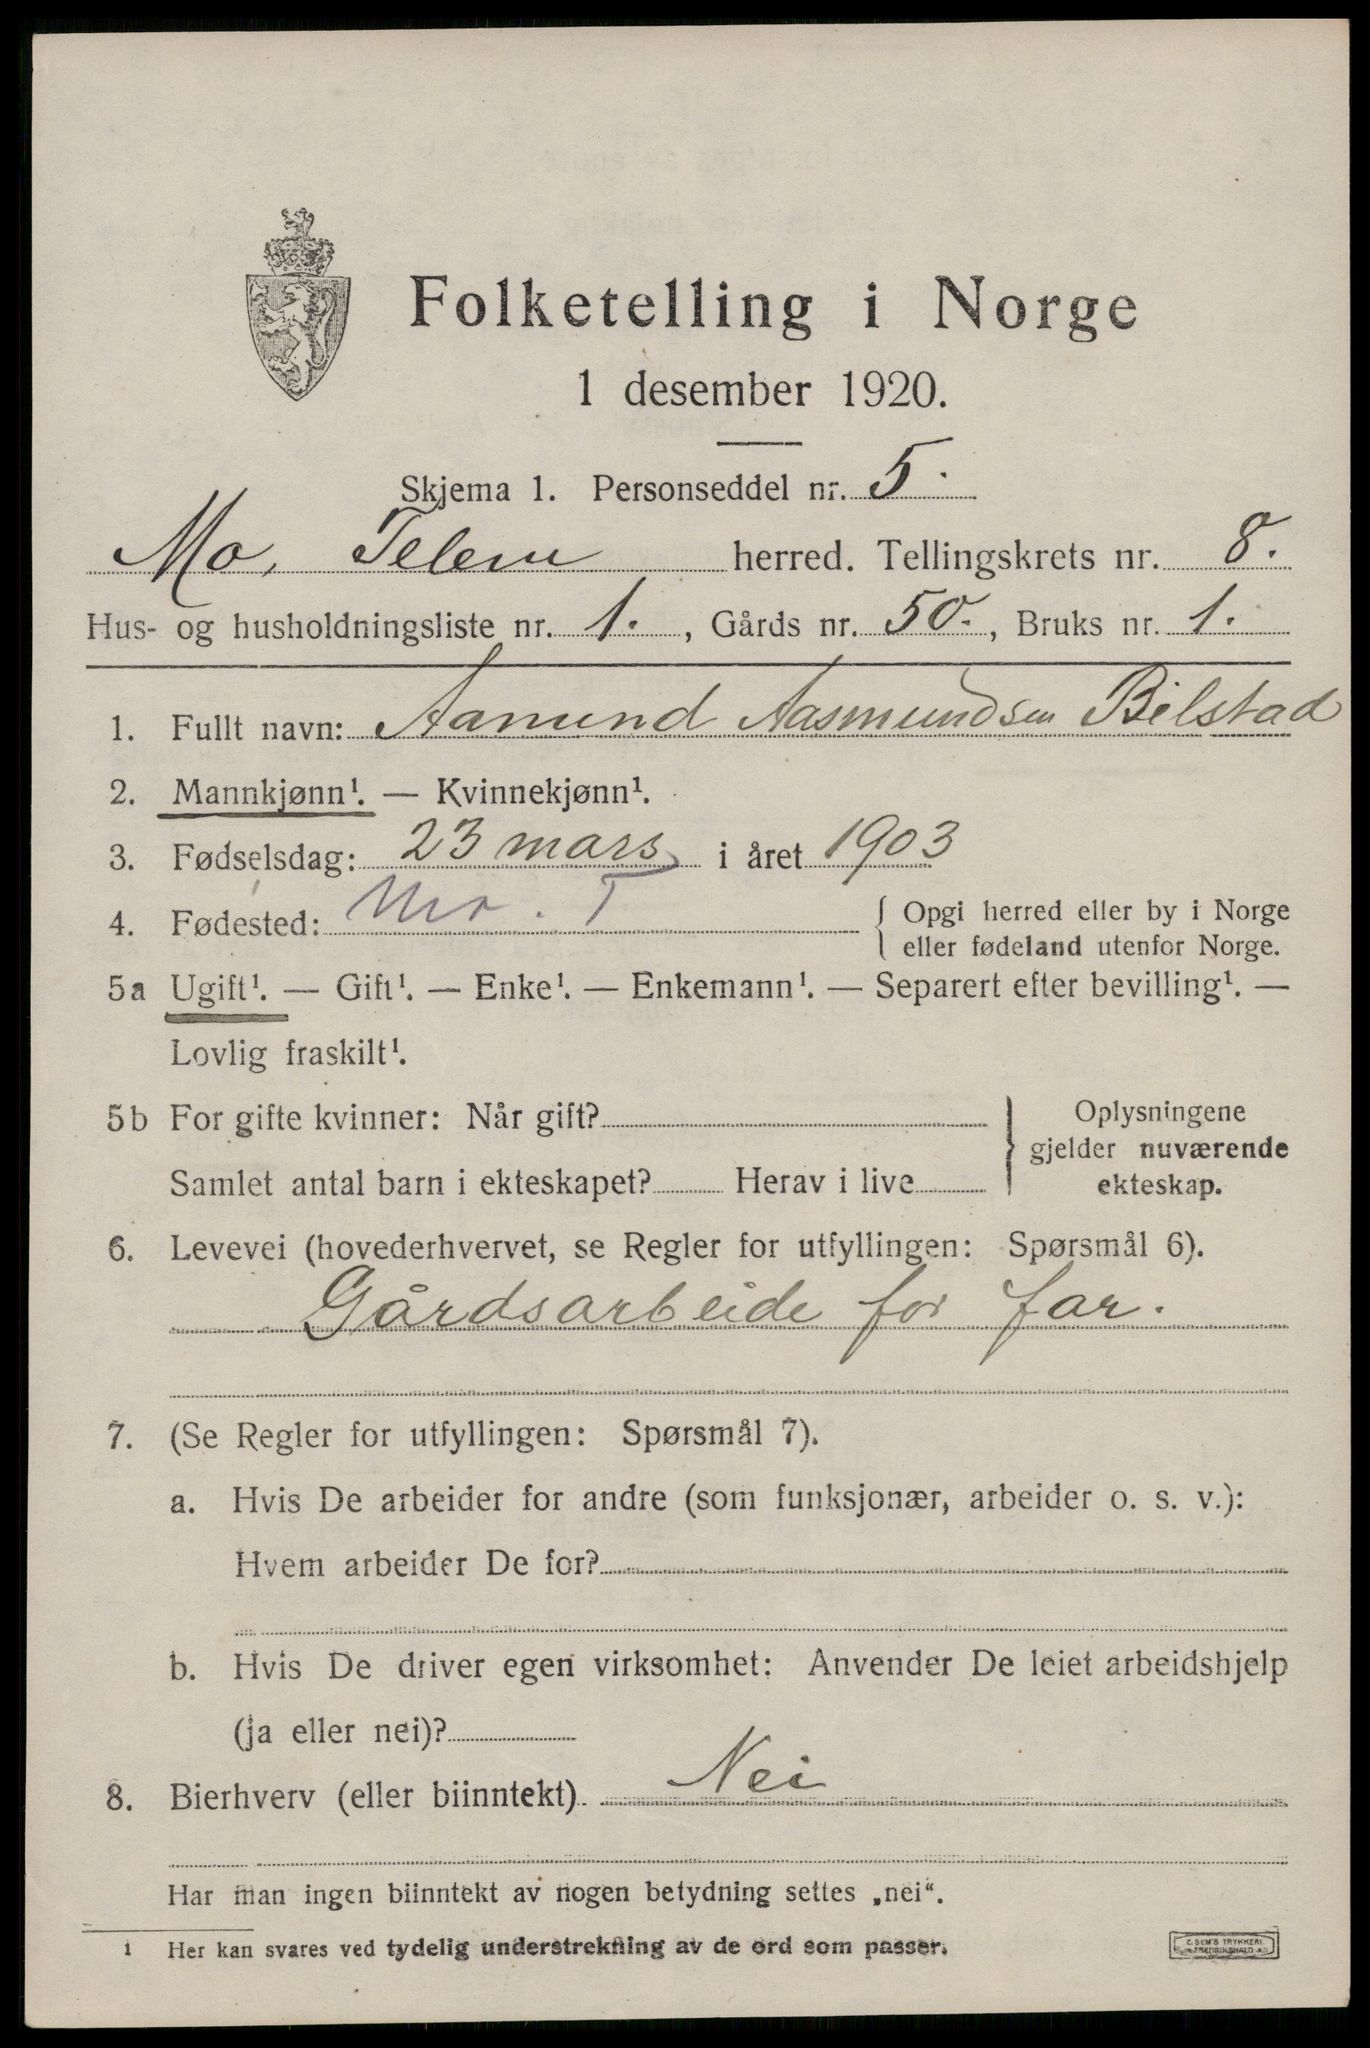 Folketelling i Norge
1 desember 1920.
Skjema 1. Personseddel nr. 5.
Mo, Telem herred. Tellingskrets nr. 8.
Hus- og husholdningsliste nr. 1., Gårds nr. 50., Bruks nr. 1.
1. Fullt navn: Aamund Aasmundsen Bilstad
2. Mannkjønn¹. — Kvinnekjønn¹.
3. Fødselsdag: 23 mars i året 1903
4. Fødested: Mo. T { Opgi herred eller by i Norge
eller fødeland utenfor Norge.
5a Ugift¹. — Gift¹. — Enke¹. — Enkemann¹. — Separert efter bevilling¹. —
Lovlig fraskilt¹.
5b For gifte kvinner: Når gift? } Oplysningene
gjelder nuværende
Samlet antal barn i ekteskapet? Herav i live ekteskap.
6. Levevei (hovederhvervet, se Regler for utfyllingen: Spørsmål 6).
Gårdsarbeide for far.
7. (Se Regler for utfyllingen: Spørsmål 7).
a. Hvis De arbeider for andre (som funksjonær, arbeider o. s. v.):
Hvem arbeider De for?
b. Hvis De driver egen virksomhet: Anvender De leiet arbeidshjelp
(ja eller nei)?
8. Bierhverv (eller biinntekt) Nei
Har man ingen biinntekt av nogen betydning settes „nei“.
1 Her kan svares ved tydelig understrekning av de ord som passer.
C. SEM'S TRYKKERI
FREDRIKSHALD